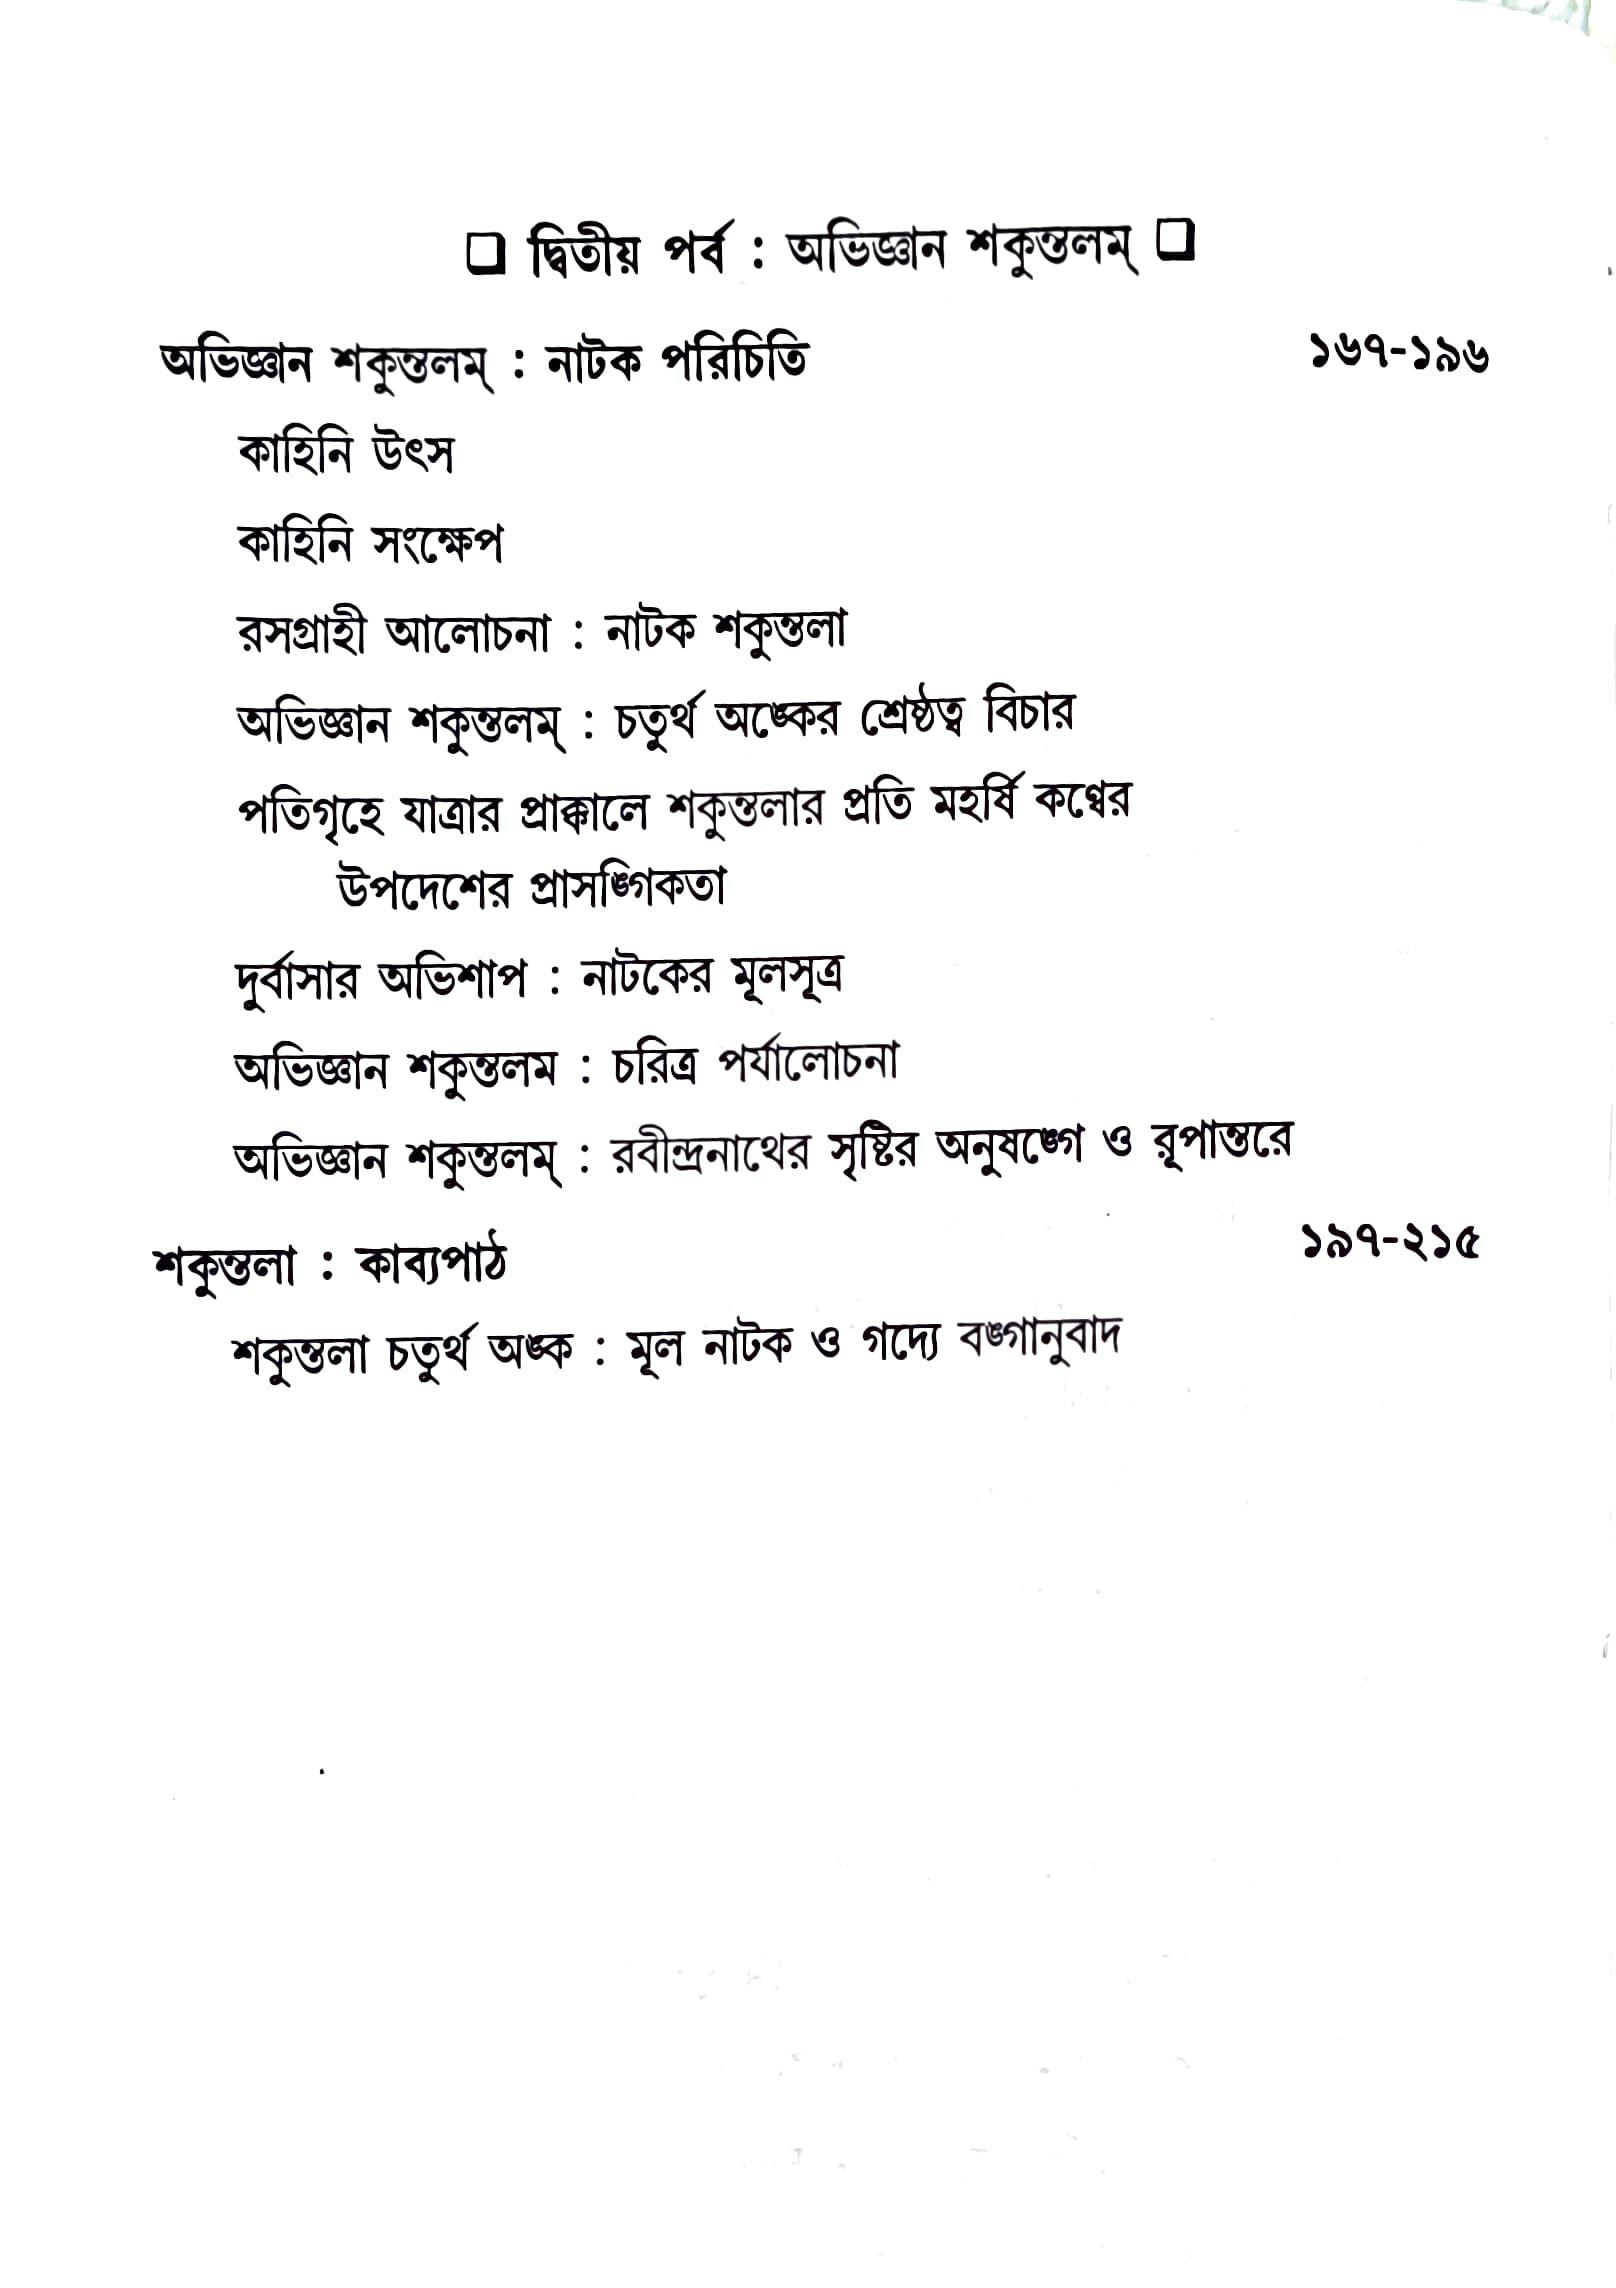 ❑ দ্বিতীয় পর্ব : অভিজ্ঞান শকুন্তলম্ ❑
অভিজ্ঞান শকুন্তলম্ : নাটক পরিচিতি ১৬৭-১৯৬
কাহিনি উৎস
কাহিনি সংক্ষেপ
রসগ্রাহী আলোচনা : নাটক শকুন্তলা
অভিজ্ঞান শকুন্তলম্ : চতুর্থ অঙ্কের শ্রেষ্ঠত্ব বিচার
পতিগৃহে যাত্রার প্রাক্কালে শকুন্তলার প্রতি মহর্ষি কণ্বের
উপদেশের প্রাসঙ্গিকতা
দুর্বাসার অভিশাপ : নাটকের মূলসূত্র
অভিজ্ঞান শকুন্তলম : চরিত্র পর্যালোচনা
অভিজ্ঞান শকুন্তলম্ : রবীন্দ্রনাথের সৃষ্টির অনুষঙ্গে ও রূপান্তরে
শকুন্তলা : কাব্যপাঠ ১৯৭-২১৫
শকুন্তলা চতুর্থ অঙ্ক : মূল নাটক ও গদ্যে বঙ্গানুবাদ